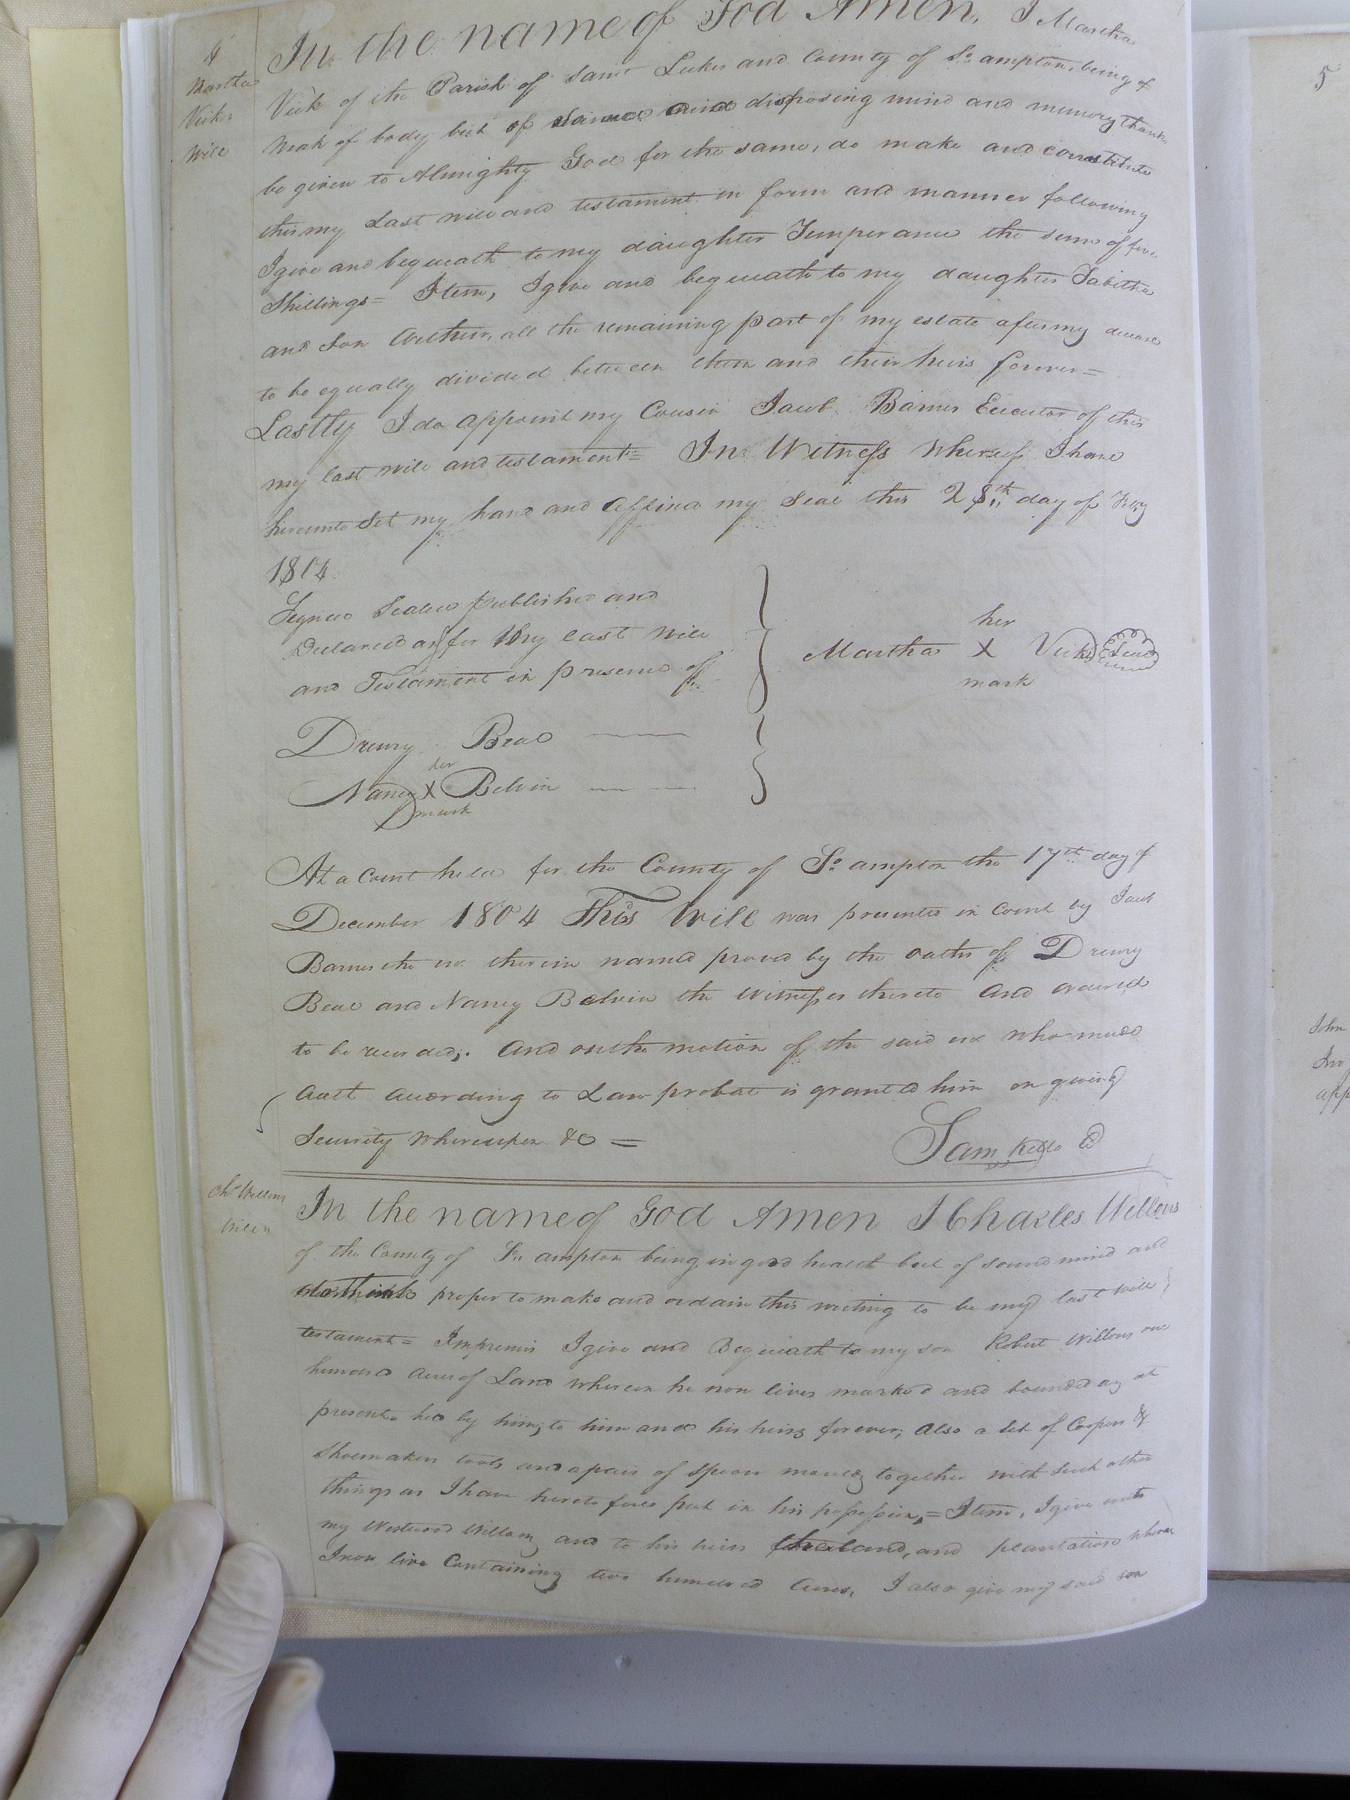 4
Martha
Vick's
Will
In the name of God Amen. I Martha
Vick of the Parish of Saint Lukes and County of So ampton, being of
Weak of body but of sound and disposing mind and memory thanks
be given to Almighty God for the same, do make and constitute
this my Last will and testament in form and manner following
I give and bequeath to my daughter Temperance the sum of five
Shillings = Item, I give and bequeath to my daughter Tabitha
and Son Arthur, all the remaining part of my estate after my decease
to be equally divided between them and their heirs forever =
Lastly I do appoint my Cousin Jacob Barnes Executor of this
my last will and testament = In Witness whereof I have
hereunto Set my hand and affixed my Seal this 28th day of Feby
1804
Signed Sealed published and
Declared as & for My last Will
and Testament in presence of
her
Martha X Vick Seal
mark
Drewry Beal
her
Nancy X Belvin
mark
At a Court held for the County of So ampton the 17th day of
December 1804 This Will was presented in Court by Jacob
Barnes the exr therein named proved by the oaths of Drewry
Beal and Nancy Belvin the Witnesses thereto and ordered
to be recorded; And on the motion of the said exr who made
Oath according to Law probat is granted him on giving
Security whereupon &c =
Sam Kello
Chs Willons
Will
In the name of God Amen I Charles Willons
of the County of So ampton being in good health but of sound mind and
do think proper to make and ordain this writing to be my last will
testament = Imprimis I give and Bequeath to my son Robert Willons one
hundred acres of Land whereon he now lives marked and bounded as at
present held by him, to him and his heirs forever, also a Set of Coopers &
Shoemakers tools and a pair of Spoon moulds together with such other
things as I have heretofore put in his possession, = Item, I give unto
my Westwood Willons and to his heirs the land, and plantation whereon
I now live Containing two hundred Acres, I also give my said son
5
John